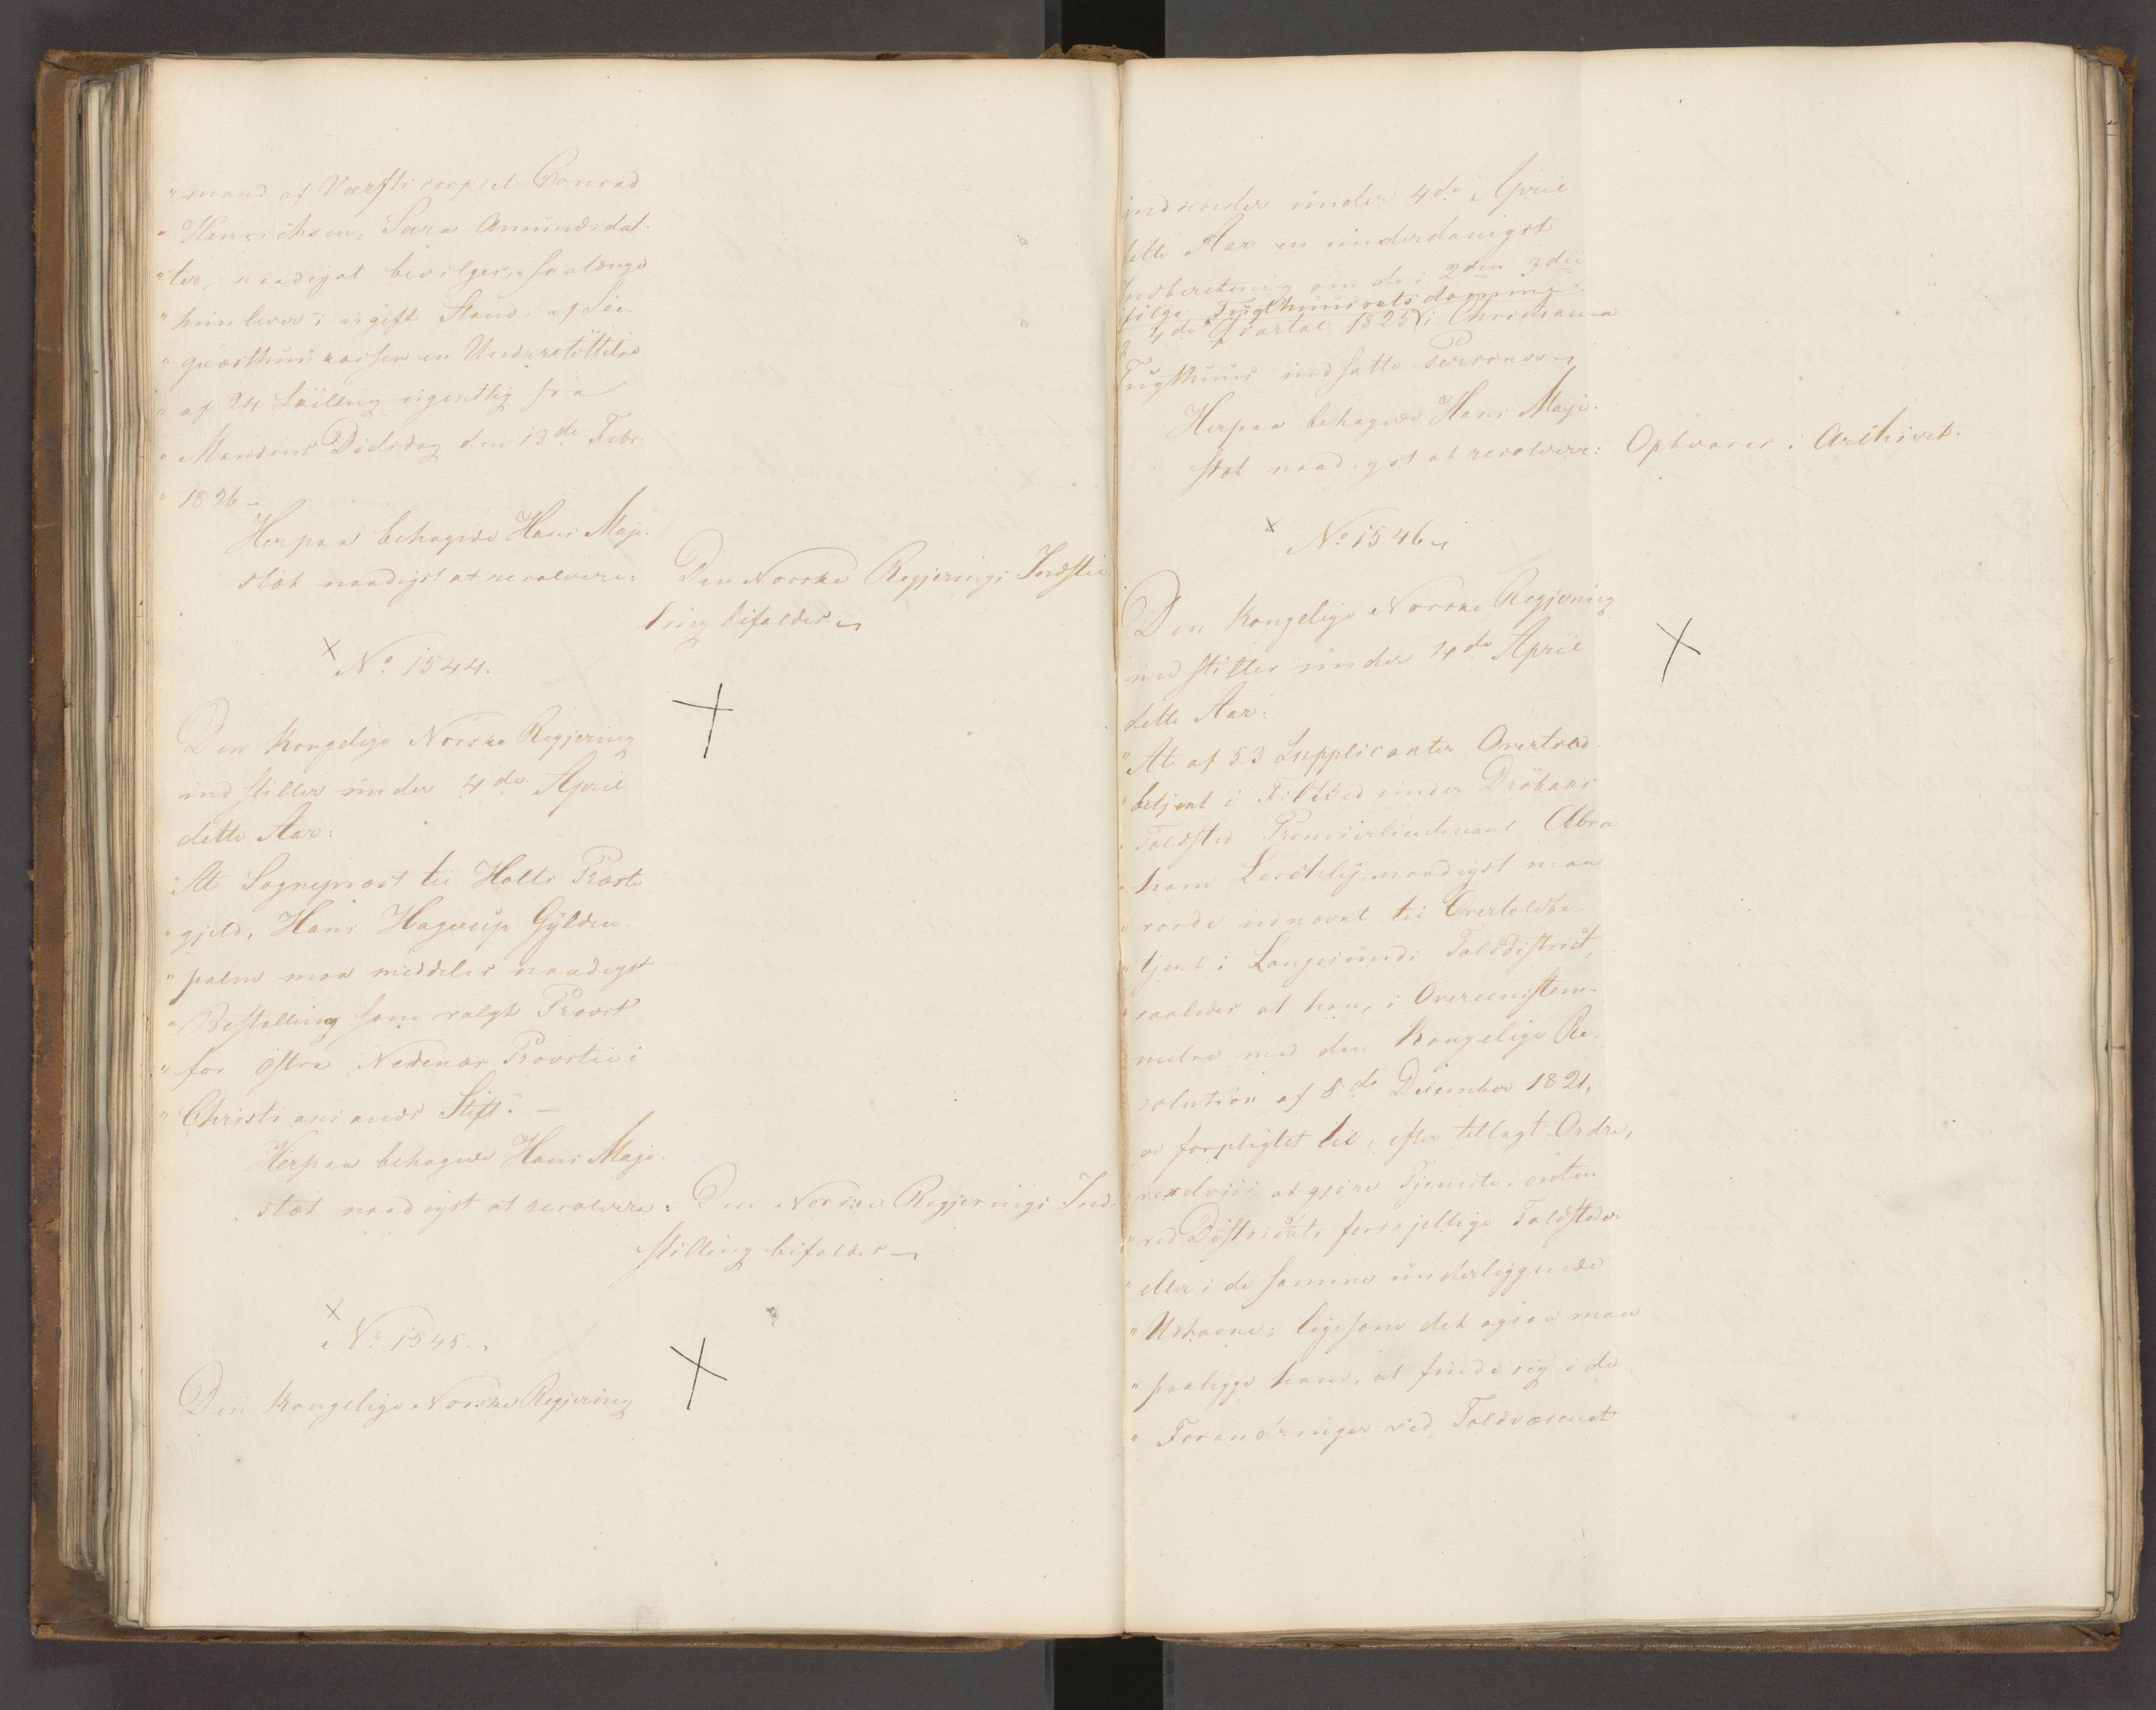 "mand af Værftscorpset Conrad
"Henrichsen, Sara Amunds dat-
"ter, naadigst bevilges, saalænge
"hun lever i ugift Stand, af Søe-
"qvæsthuuskassen en Understøttelse
"af 24 Skilling ugentlig fra
"Mandens Dødsdag den 13de Febr:
"1826 –
Herpaa behagede Hans Maje-
stæt naadigst at resolvere: Den Norske Regjerings Indstil-
ling bifaldes
× No 1544.
Den Kongelige Norske Regjering
indstiller under 4de April
dette Aar:
"At Sogneprest til Holts Præste-
"gjeld, Hans Hagerup Gylden-
"palm maa meddeles naadigst
"Bestalling som valgt Provst
"for Østre Nedenæs Provstie i
"Christiansands Stift." –
Herpaa behagede Hans Maje-
stæt naadigst at resolvere: Den Norske Regjerings Ind-
stilling bifaldes
× No 1545.
Den Kongelige Norske Regjering
indsender under 4de April
dette Aar en underdanigst
Indberetning om de i 2den 3die
ifølge Tugthuusretsdomme
& 4de Qvartal 1825 i Christiania
Tugthuus indsatte Personer
Herpaa behagede Hans Maje-
stæt naadigst at resolvere: Opbevares i Archivet.
× No 1546
Den Kongelige Norske Regjering
indstiller under 4de April
dette Aar:
"At af 53 Supplicanter Overtold-
"betjent i Filtved under Drøbaks
"Toldsted Premierlieutenant Abra-
"ham Leschly, naadigst maa
"vorde udnævnt til Overtoldbe-
"tjent i Langesunds Tolddistrict,
"saaledes at han, i Overeenstem-
melse med den Kongelige Re-
solution af 8de December 1821,
er forpligtet til, efter tillagt Ordre,
vexelviis at gjøre Tjeneste, enten
"ved Districtets forskjellige Toldsteder
"eller i de samme underliggende
"Udhavne; ligesom det ogsaa maa
"paaligge ham, at finde sig i de
"Forandringer ved Toldvæsenet